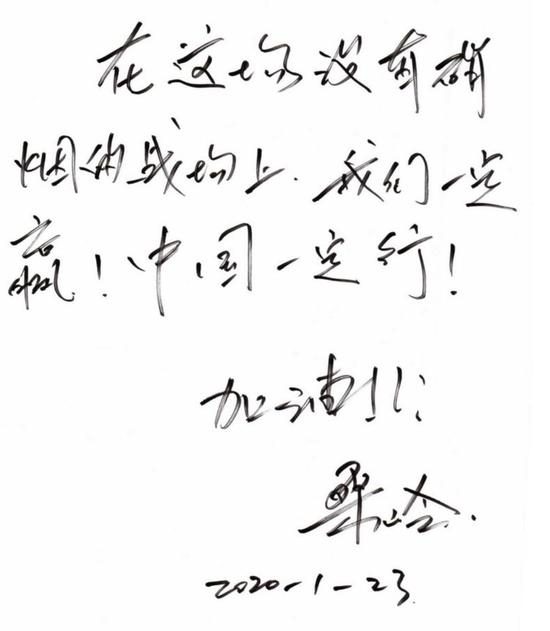 在这场没有硝
烟的战场上.我们一定
赢!中国一定行!
加油!!!
2020-1-23